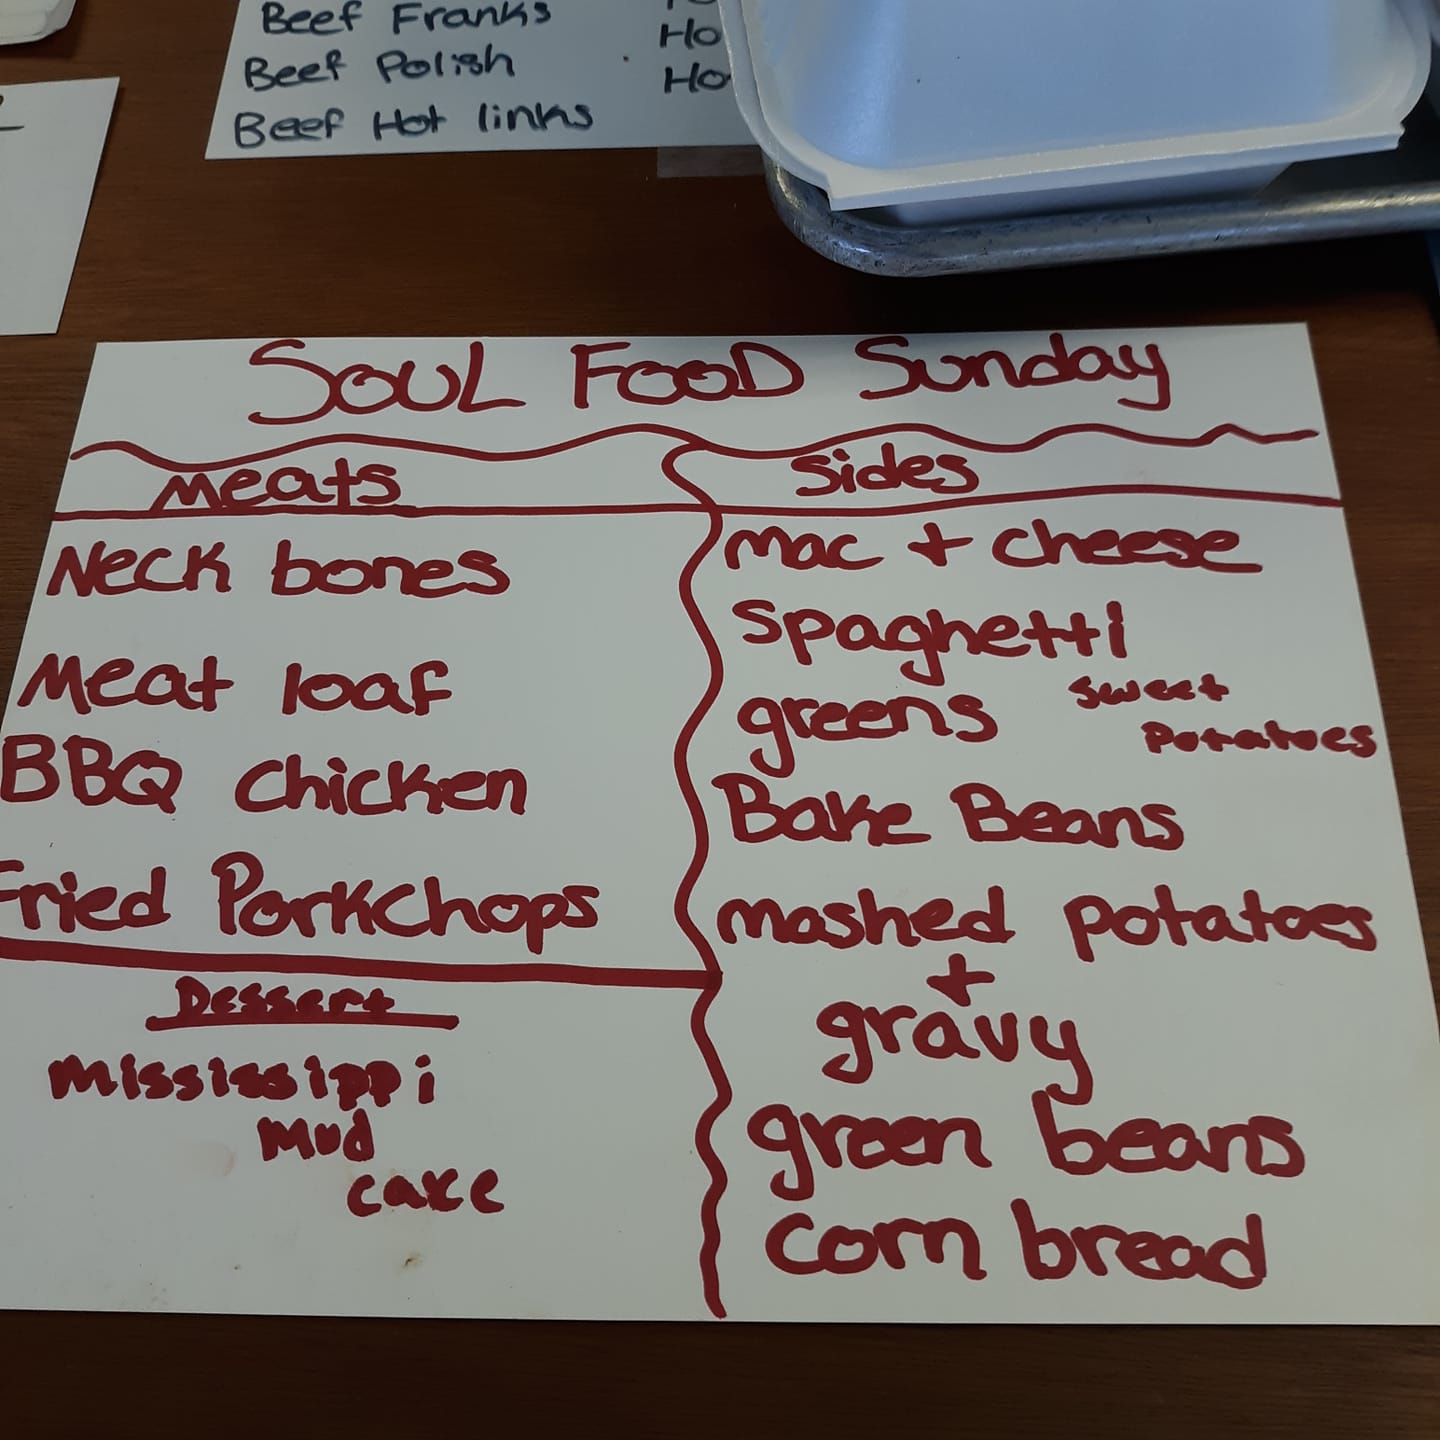 Beef Franks
Beef Polish
Ho
Beef Hot links
Ho
SOUL FOOD Sunday
Meats
Neck bones
Meat loaf
BBQ Chicken
Fried Porkchops
Dessert
Mississippi
Mud
cake
Sides
mac + cheese
Spaghetti
greens
Sweet
Potatoes
Bake Beans
mashed potatoes
+
gravy
green beans
corn bread